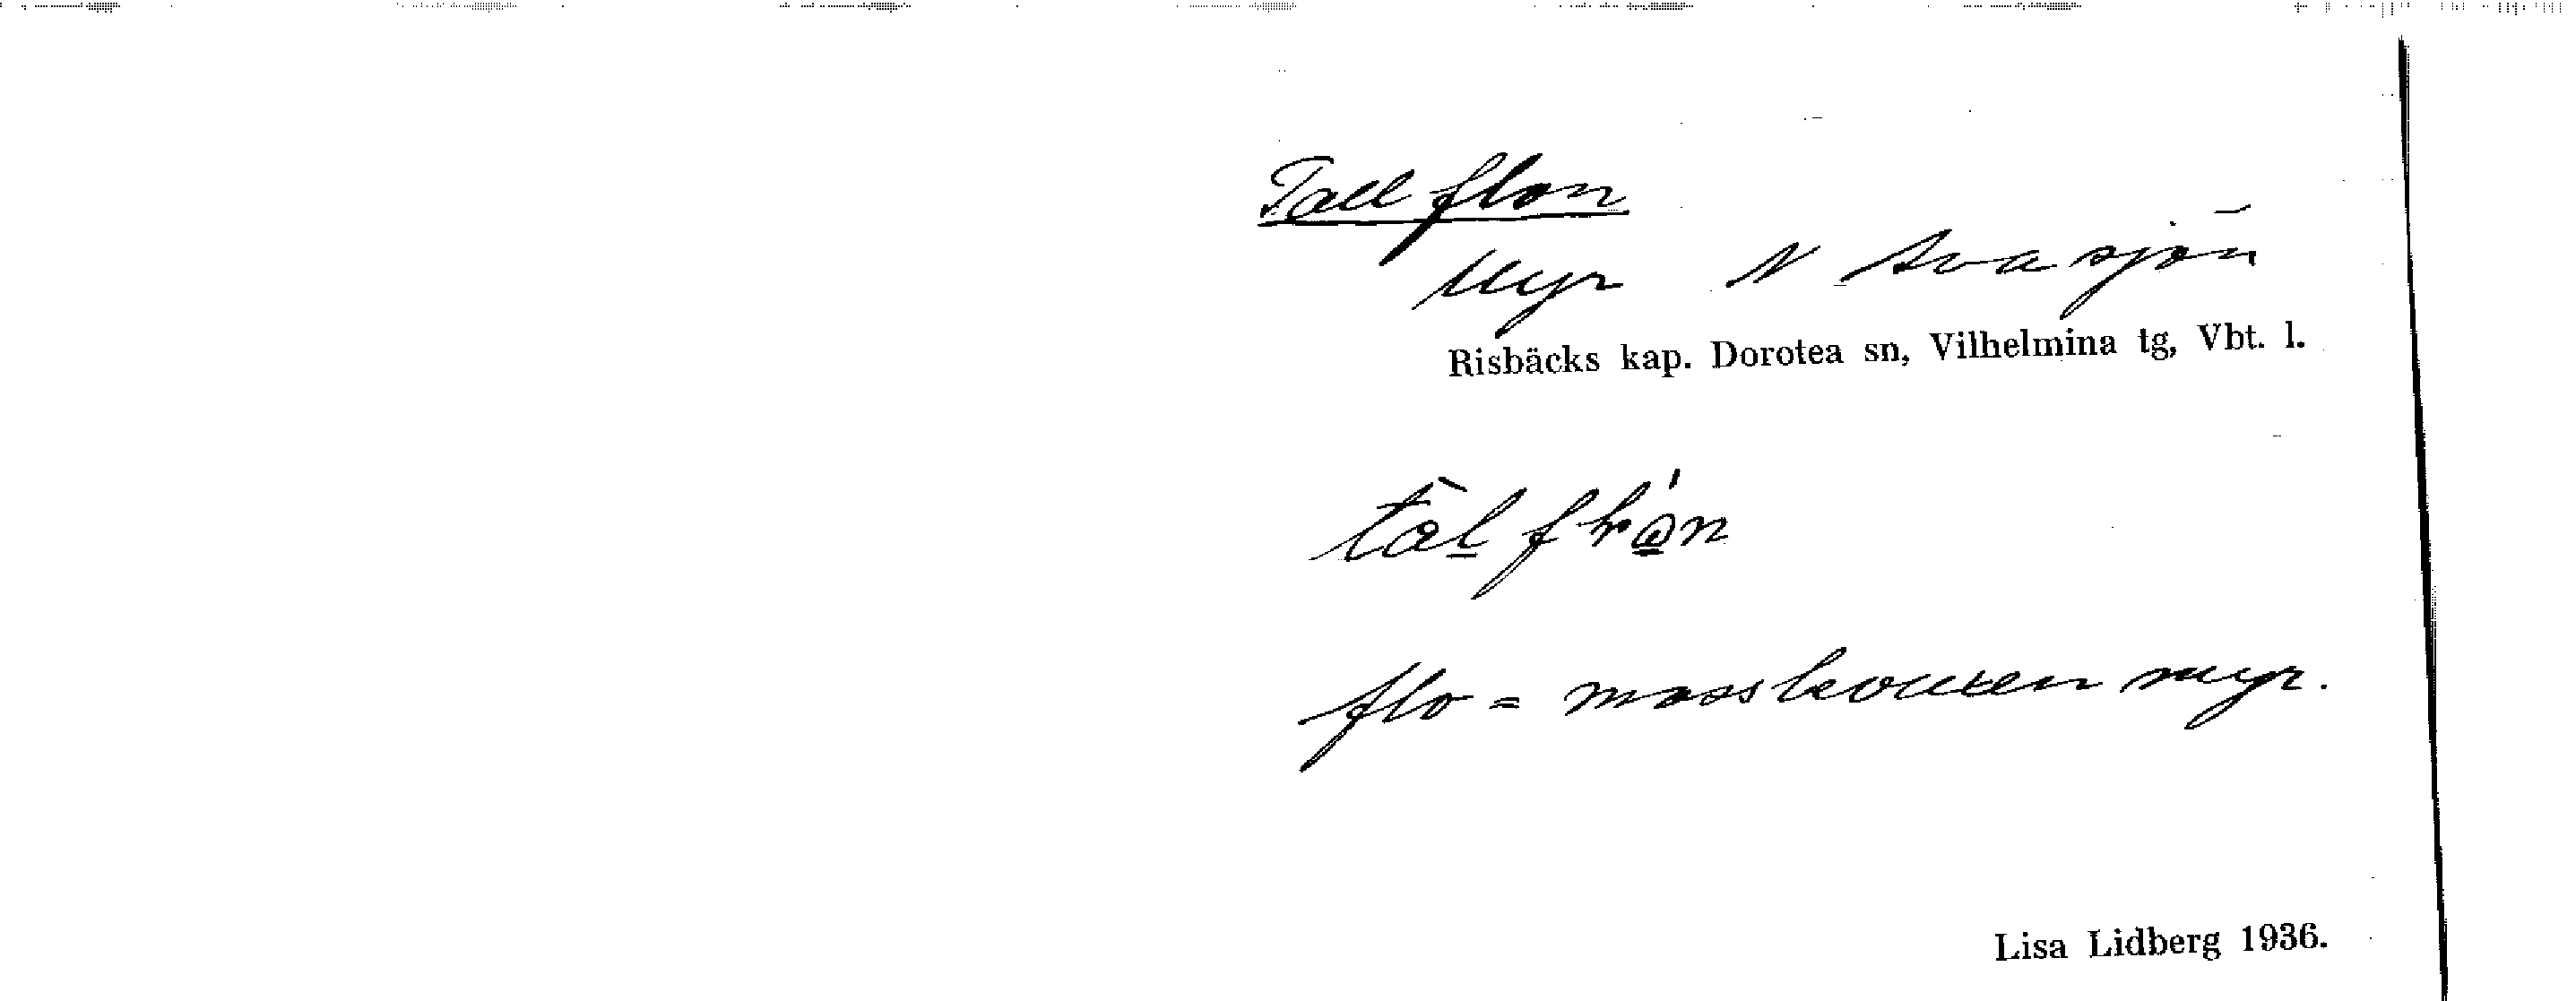 Tallflon
Myr N Avasjön
Risbäcks kap. Dorotea sn, Vilhelmina tg, Vbt. l.
flo = mossbevuxen myr.
Lisa Lidberg 1936.